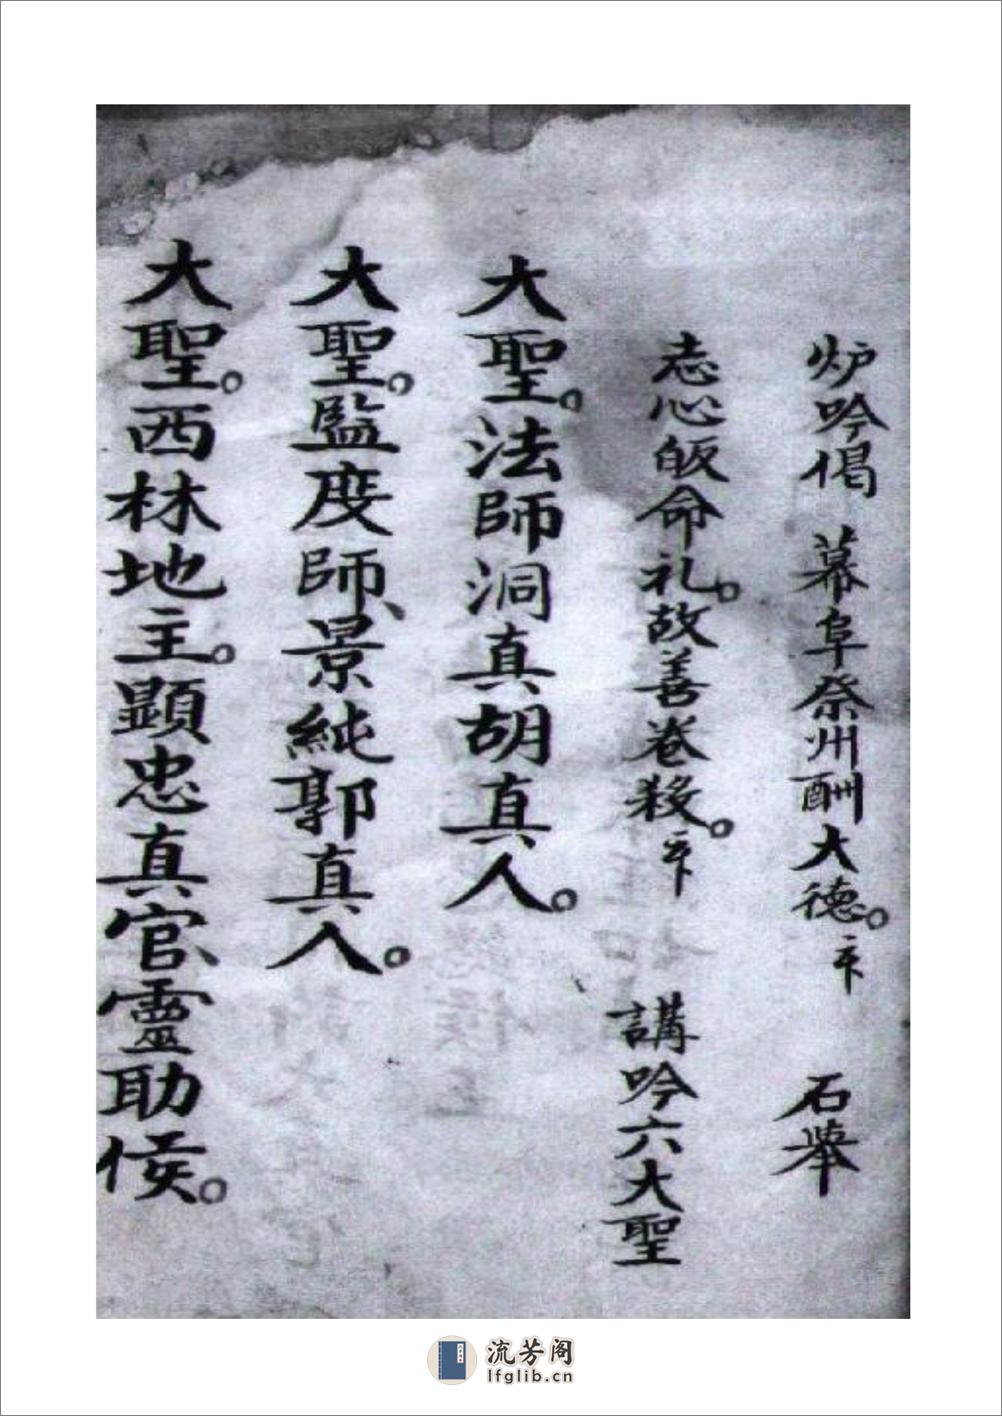 炉吟偈 幕阜祭州酬大德。 石举
志心皈命礼。故善卷殁。 講吟六大聖
大聖。法師洞真胡真人。
大聖。監度師、景純郭真人。
大聖。西林地主。顕忠真官、靈助侯。
流芳阁
lfglib.cn